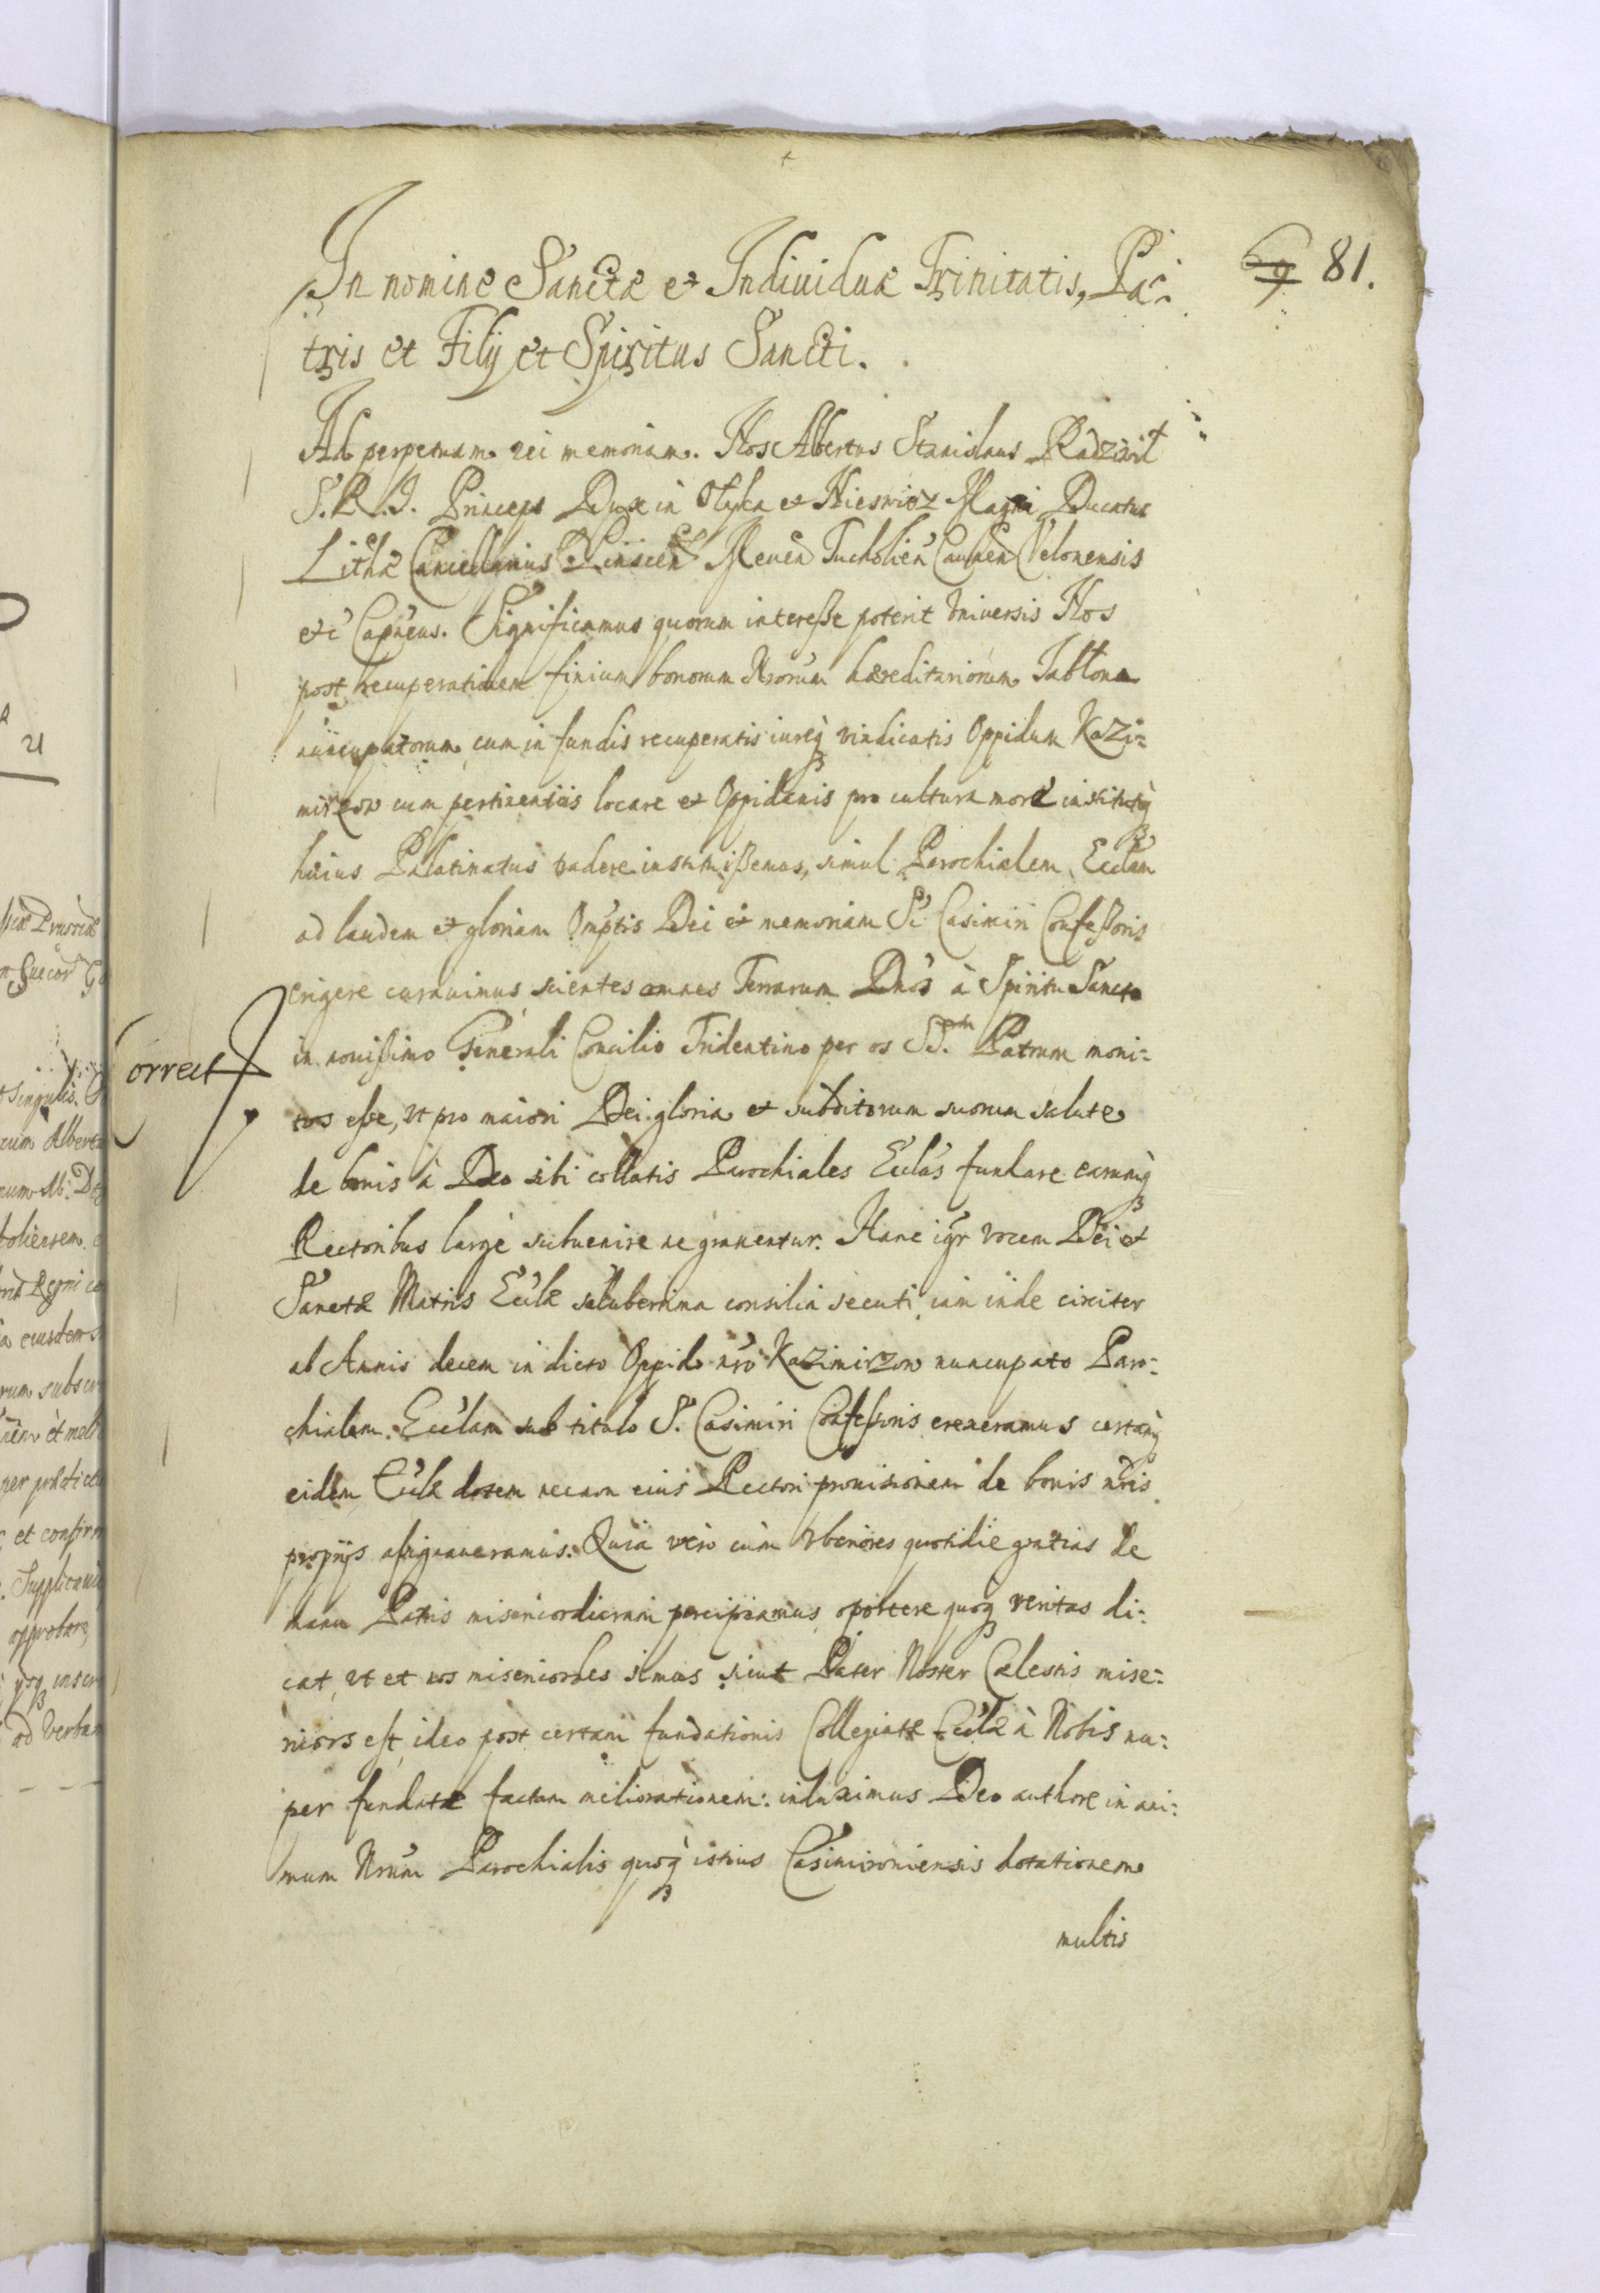 69 81.
In nomine Sanctæ et Individuæ Trinitatis, Pa:
tris et Filij et Spiritus Sancti.
Ad perpetuam rei memoriam. Nos Albertus Stanislaus Radziwił
S. R. I. Princeps Dux in Ołyka et Nieswicz Magni Ducatus
Lithæ Cancellarius Pinscen Meuen Tucholien Caunen Velonensis
etc Capneus. Significamus quorum interesse poterit Vniversis Nos
post recuperationem finium bonorum Nrorum hæreditariorum Jabłona
nuncupatorum cum in fundis recuperatis iureq vindicatis Oppidum Kazi:
mirzow cum pertinentiis locare et Oppidanis pro cultura more institutoq
huius Palatinatus tradere instituissemus, simul Parochialem Ecclam
ad laudem et gloriam Omptis Dei et memoriam Sti Casimiri Confessoris
erigere curauimus scientes omnes Terrarum Dnos à Spiritu Sancto
in nouissimo Generali Concilio Tridentino per os SS. Patrum moni:
tos esse, ut pro maiori Dei gloria et subditorum suorum salute
de bonis à Deo sibi collatis Parochiales Ecclas fundare earumq
Rectoribus largè subuenire ne grauentur. Hanc igr vocem Dei et
Sanctæ Matris Ecclæ saluberrima consilia secuti iam inde circiter
ab Annis decem in dicto Oppido nro Kazimirzow nuncupato Paro:
chialem Ecclam sub titulo S. Casimiri Confessoris erexeramus certamq
eidem Ecclæ dotem necnon eius Rectori prouisionem de bonis nris
proprijs assignaueramus. Quia vero cum vberiores quotidie gratias de
manu Patris misericordiarum percipiamus oportere quoq veritas di:
cat, ut et nos misericordes simus sicut Pater Noster Cælestis mise:
ricors est, ideo post certam fundationis Collegiatæ Ecclæ à Nobis nu:
per fundatæ factam meliorationem: induximus Deo authore in ani:
mum Nrum Parochialis quoq istius Casimiroviensis dotationem
multis
Correct